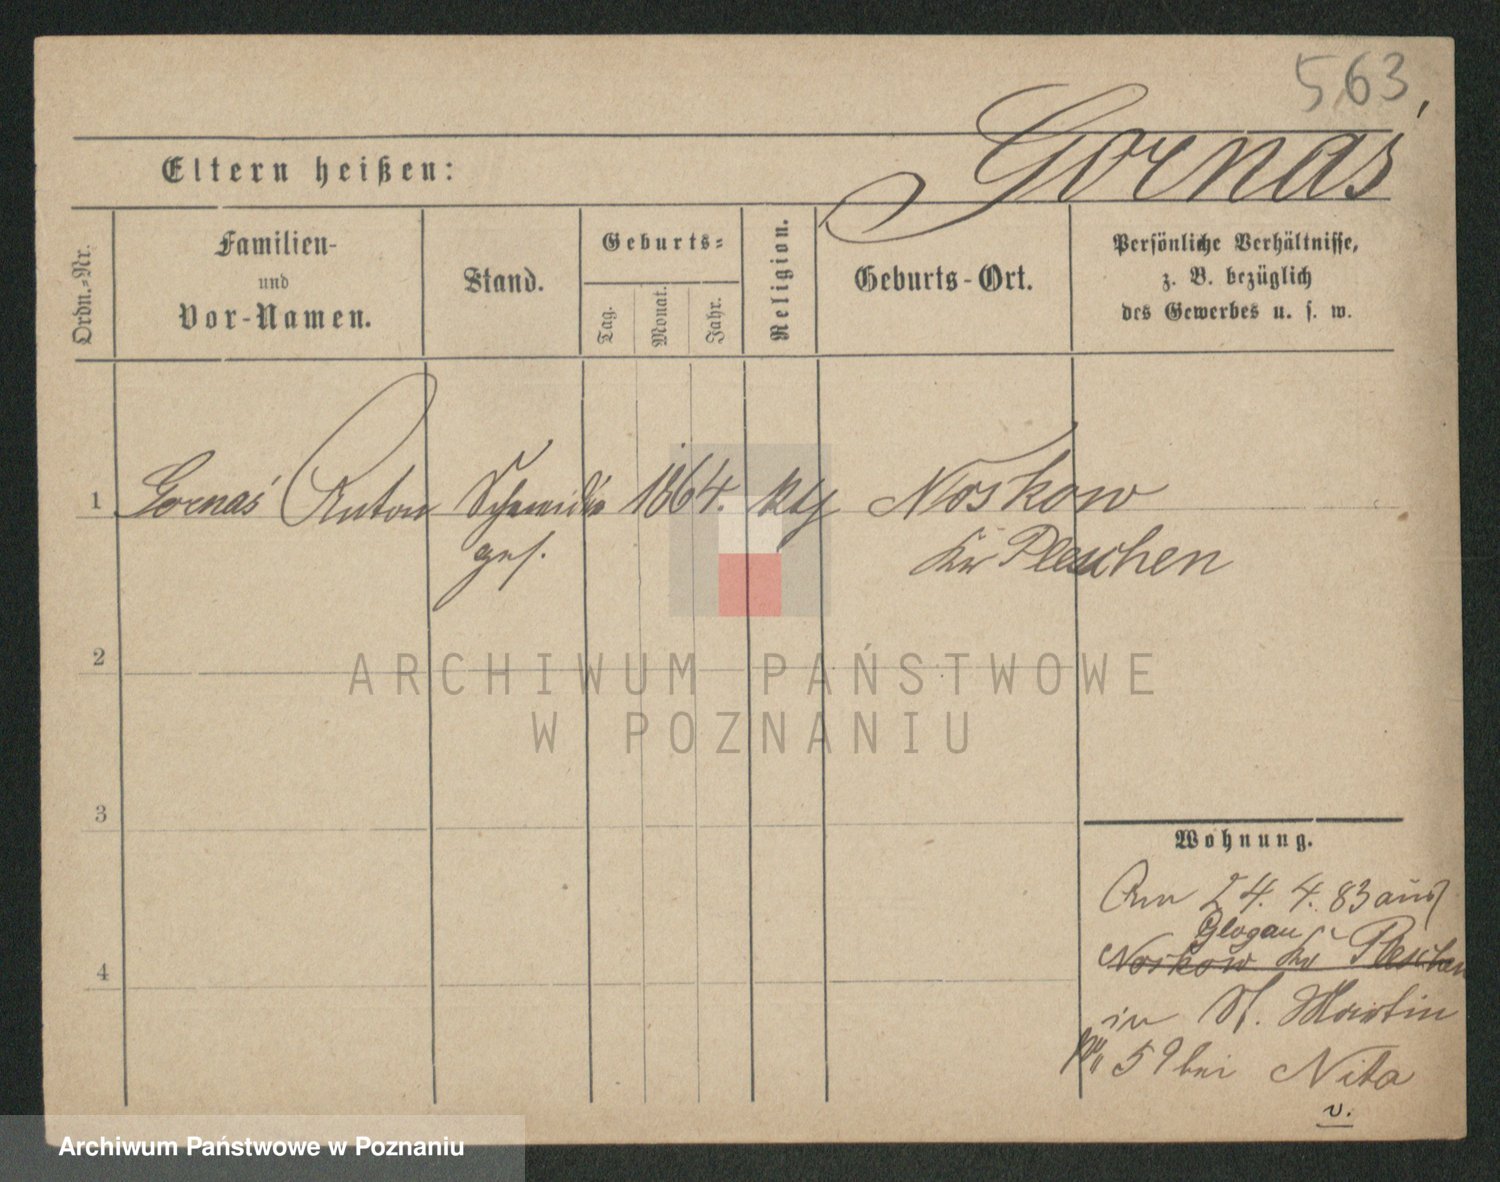 563
Gornaś
Eltern heißen:
Ordn.-Nr.
Familien-
und
Vor-Namen.
Stand.
Geburts-
Tag.
Monat.
Jahr.
Religion.
Geburts-Ort.
Persönliche Verhältnisse,
z. B. bezüglich
des Gewerbes u. s. w.
1 Gornaś Anton Schmiede 1864. ktl Noskow
ges. Kr Pleschen
2
ARCHIWUM PAŃSTWOWE
W POZNANIU
3
Wohnung.
Am 24. 4. 83 aus
Glogau
Noskow Kr Pleschen
4
in St. Martin
No 59 bei Nita
v.
Archiwum Państwowe w Poznaniu